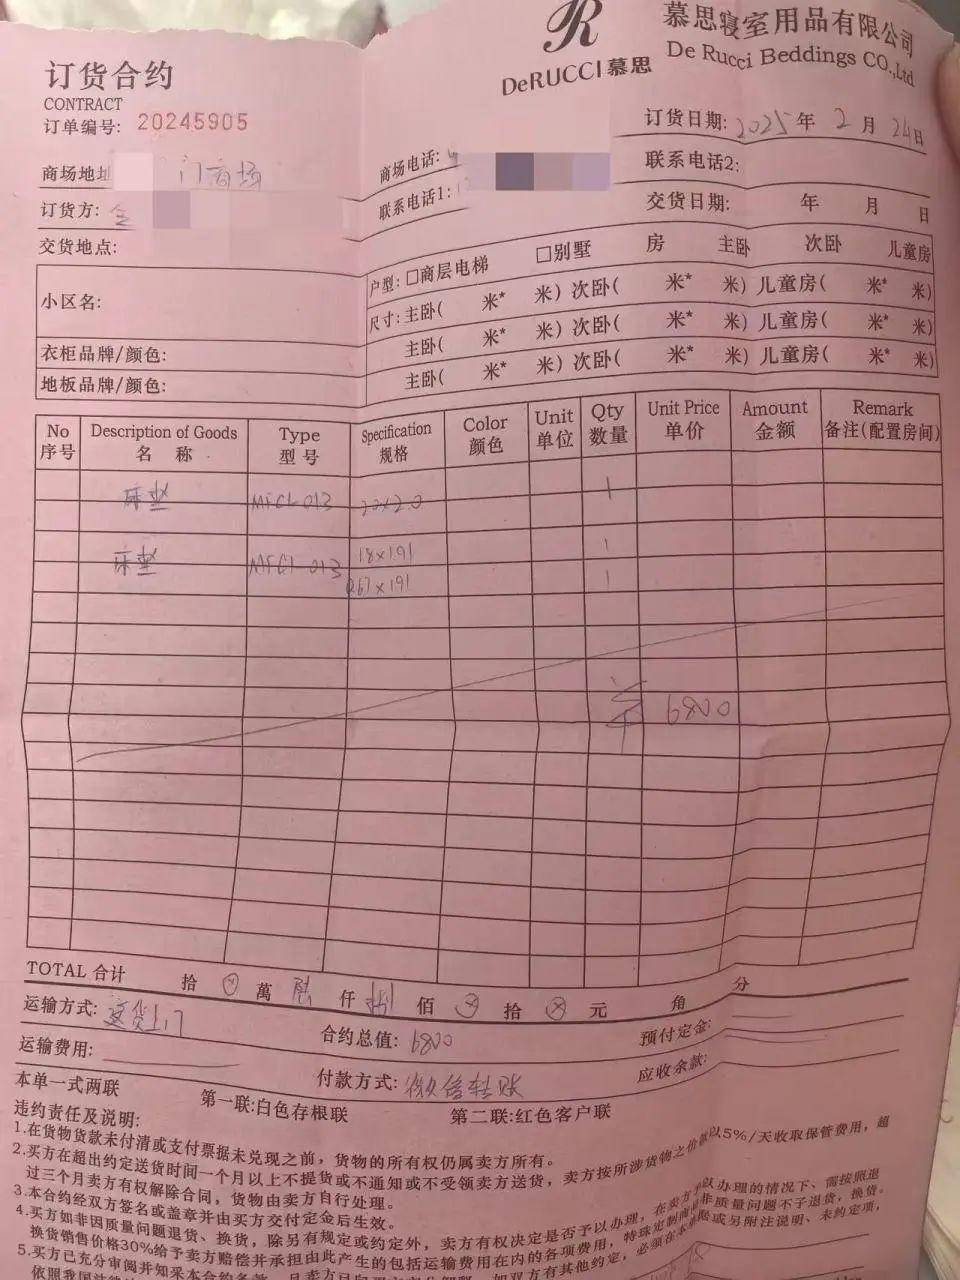 DeRUCCI慕思
慕思寝室用品有限公司
De Rucci Beddings CO.,Ltd
订货合约
CONTRACT
订单编号: 20245905
订货日期: 2025年 2月 24日
商场地址 门商场
商场电话:
联系电话2:
订货方:
联系电话1:
交货日期: 年 月 日
交货地点:
户型: □商层电梯 □别墅 房 主卧 次卧 儿童房
小区名:
尺寸: 主卧( 米* 米) 次卧( 米* 米) 儿童房( 米* 米)
主卧( 米* 米) 次卧( 米* 米) 儿童房( 米* 米)
衣柜品牌/颜色:
主卧( 米* 米) 次卧( 米* 米) 儿童房( 米* 米)
地板品牌/颜色:
No 序号 Description of Goods 名 称 Type 型号 Specification 规格 Color 颜色 Unit 单位 Qty 数量 Unit Price 单价 Amount 金额 Remark 备注(配置房间)
床垫 MFC1-013 20×2.0 1
床垫 MFC1-013 18×191 1
×191 1
6800
TOTAL 合计 拾 ⊗ 萬 陆 仟 捌 佰 ⊗ 拾 ⊗ 元 角 分
运输方式: 送货上门 合约总值: 6800 预付定金:
运输费用: 付款方式: 微信转账 应收余款:
本单一式两联 第一联:白色存根联 第二联:红色客户联
违约责任及说明:
1.在货物货款未付清或支付票据未兑现之前，货物的所有权仍属卖方所有。
2.买方在超出约定送货时间一个月以上不提货或不通知或不受领卖方送货，卖方按所涉货物之价款以5%/天收取保管费用，超
过三个月卖方有权解除合同，货物由卖方自行处理。
3.本合约经双方签名或盖章并由买方交付定金后生效。
4.买方如非因质量问题退货、换货，除另有规定或约定外，卖方有权决定是否予以办理，在卖方予以办理的情况下、需按照退
换货销售价格30%给予卖方赔偿并承担由此产生的包括运输费用在内的各项费用，特殊定制商品非质量问题不予退货、换货。
5.买方已充分审阅并知采本合约条款
依照我国法律
如双方有其他约定，必须在本单 或另附注说明、未约定项，